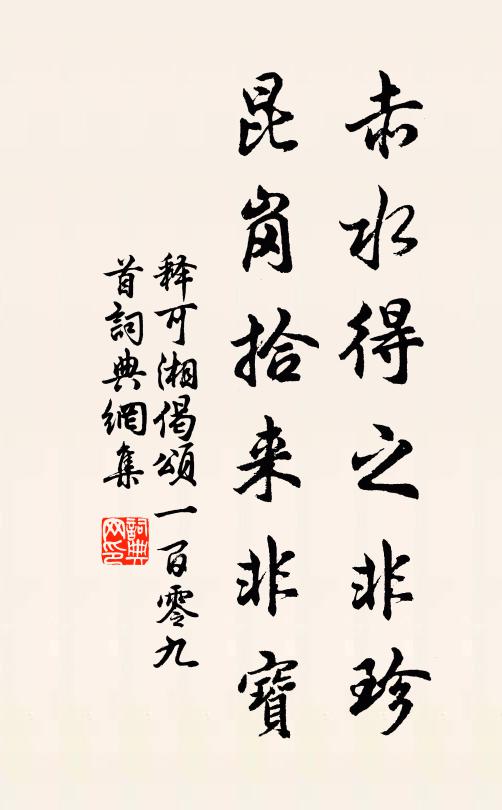 赤水得之非珍
昆崗拾来非寶
释可湘偈頌一百零九
首詞典網集
詞典
网印